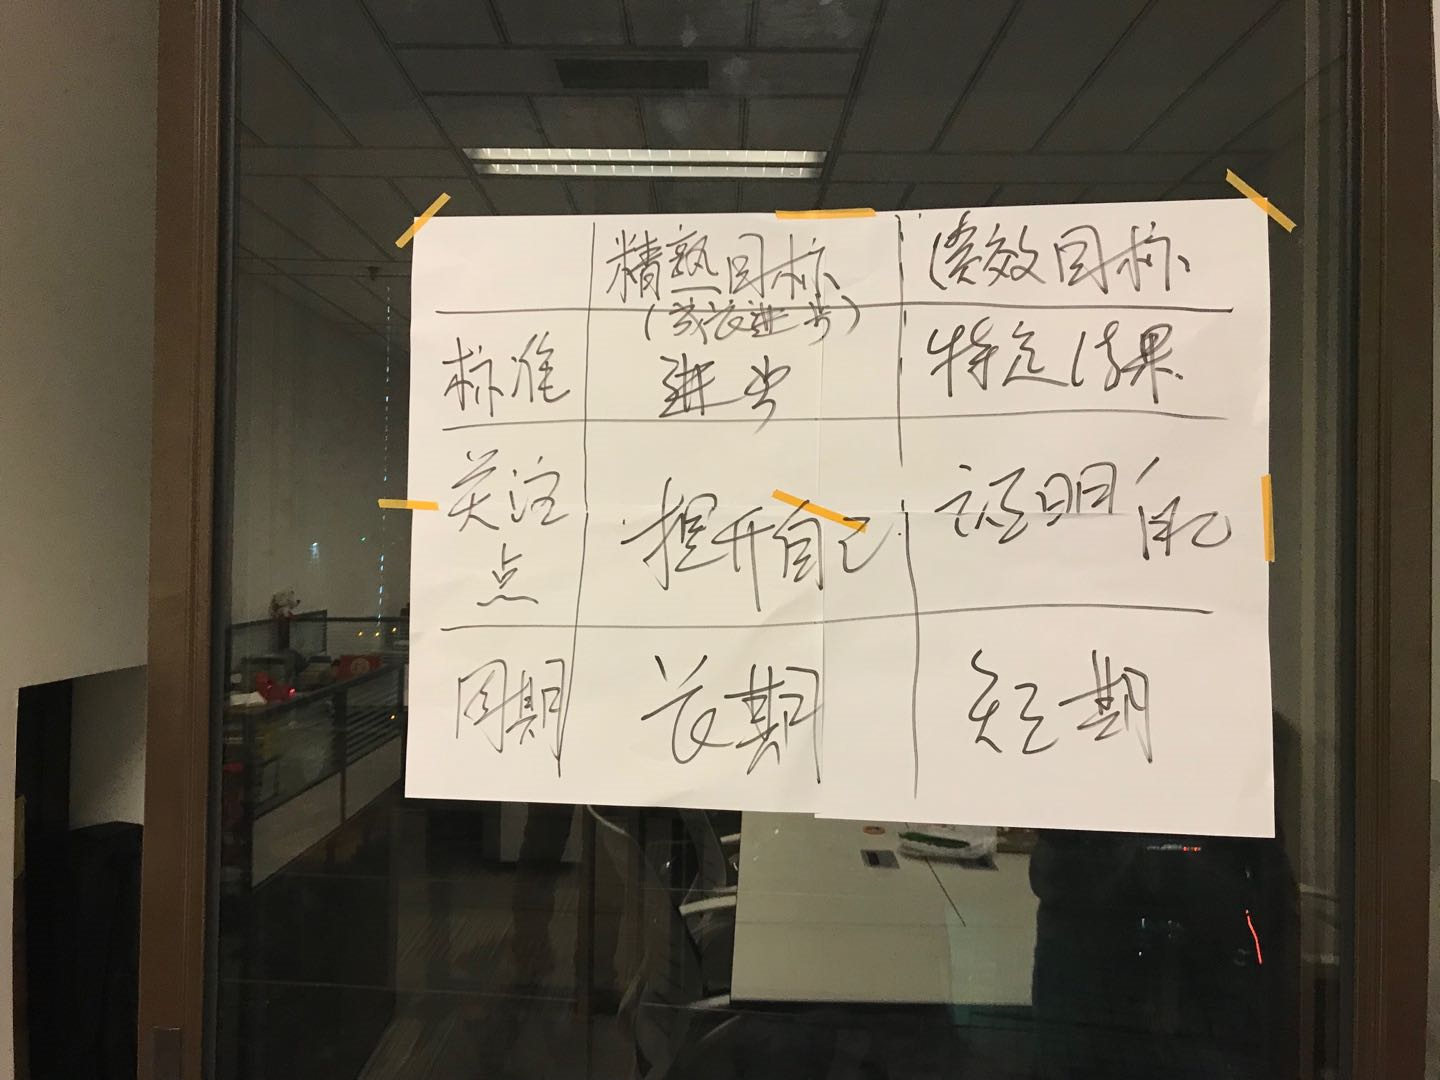 精熟目标 绩效目标
(成长进步)
标准 进步 特定结果
关注点 提升自己 证明自己
周期 长期 短期